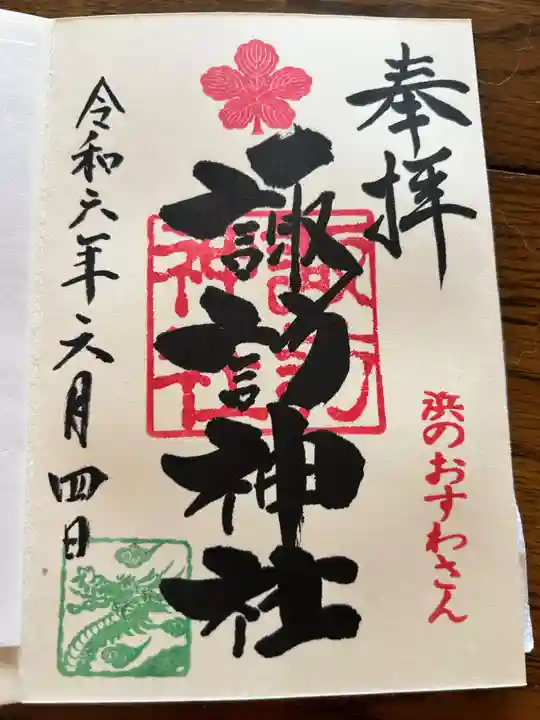 奉拝
浜のおすわさん
諏訪神社
諏訪
神社
令和六年六月四日